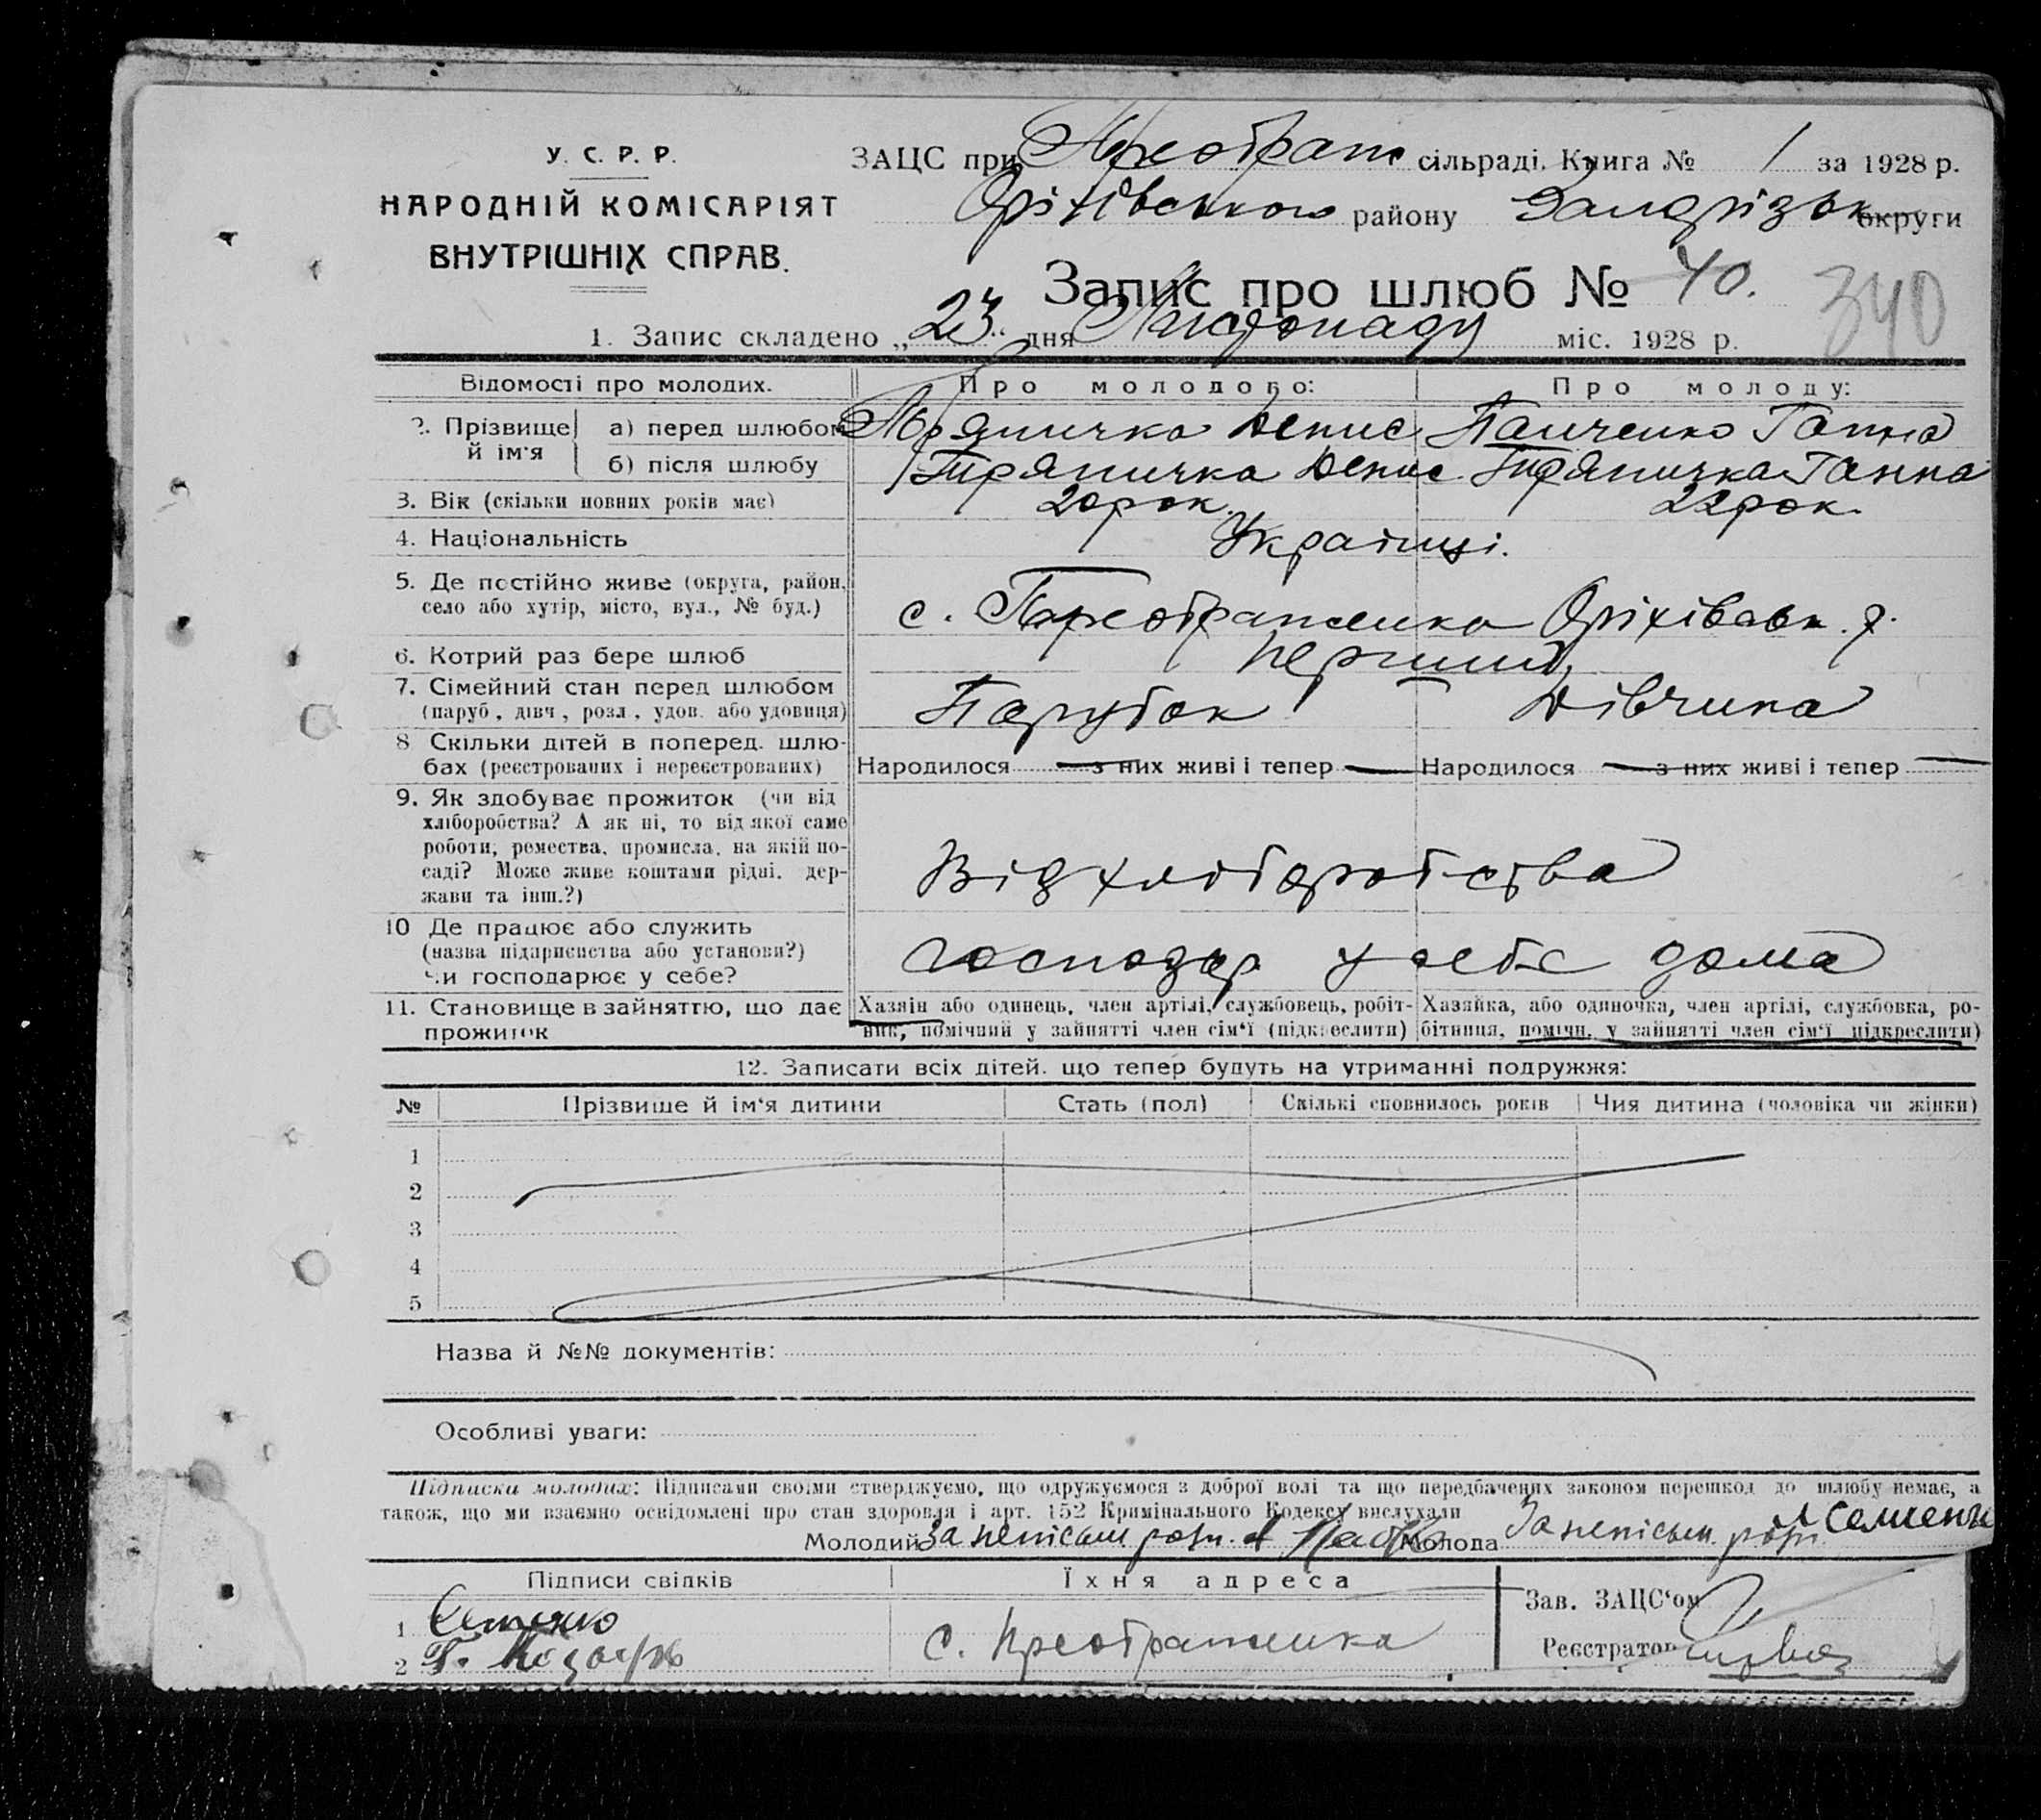 У. С. Р. Р.
НАРОДНІЙ КОМІСАРІЯТ
ВНУТРІШНІХ СПРАВ.
ЗАЦС при Преображ сільраді. Книга № 1 за 1928 р.
Оріхівського району округи
Запис про шлюб № 40.
340
1. Запис складено „23“ дня Листопаду міс. 1928 р.
Відомості про молодих. Про молодого: Про молоду:
2. Прізвище й ім'я а) перед шлюбом Пряничка Денис Панченко Ганна
б) після шлюбу Пряничка Денис Пряничка Ганна
3. Вік (скільки повних років має) 20 рок. 22 рок.
4. Національність Українці.
5. Де постійно живе (округа, район,
село або хутір, місто, вул., № буд.) с. Преображенка Оріхівськ. р.
6. Котрий раз бере шлюб перший
7. Сімейний стан перед шлюбом
(паруб., дівч., розл., удов. або удовиця) Парубок Дівчина
8 Скільки дітей в поперед. шлю-
бах (реєстрованих і нереєстрованих) Народилося — з них живі і тепер — Народилося — з них живі і тепер —
9. Як здобуває прожиток (чи від
хліборобства? А як ні, то від якої саме
роботи, ремества, промисла, на якій по-
саді? Може живе коштами рідні, дер-
жави та інш.?) Від хліборобства
10 Де працює або служить
(назва підприємства або установи?)
чи господарює у себе? господар у себе дома
11. Становище в зайняттю, що дає
прожиток
Хазяін або одинець, член артілі, службовець, робіт-
ник, помічний у зайнятті член сім'ї (підкреслити)
Хазяйка, або одиночка, член артілі, службовка, ро-
бітниця, помічн. у зайнятті член сім'ї підкреслити)
12. Записати всіх дітей, що тепер будуть на утриманні подружжя:
№ Прізвище й ім'я дитини Стать (пол) Скількі сповнилось років Чия дитина (чоловіка чи жінки)
1
2
3
4
5
Назва й №№ документів:
Особливі уваги:
Підписка молодих: Підписами своїми стверджуємо, що одружуємося з доброї волі та що передбачених законом перешкод до шлюбу немає, а
також, що ми взаємно освідомлені про стан здоровля і арт. 152 Кримінального Кодексу вислухали
Молодий За неписьм розп. Молода За неписьм. розп.
Підписи свідків Їхня адреса Зав. ЗАЦС'ом
1
2 Г. с. Преображенка Реєстратор